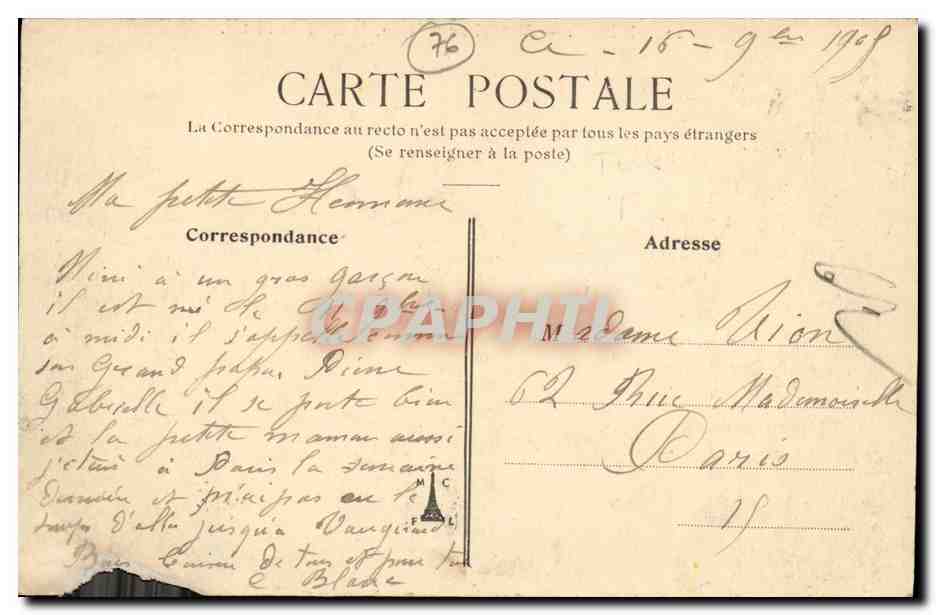 76
Ce - 16 - 9bre 1905
CARTE POSTALE
La Correspondance au recto n'est pas acceptée par tous les pays étrangers
(Se renseigner à la poste)
Ma petite
Correspondance
Adresse
Nini à un gros garçon
il est né le
à midi il s'appelle comme
son Grand papa Pierre
Gabrielle il se porte bien
et la petite maman aussi
j'étais à Paris la semaine
dernière et n'ai pas eu le
temps d'aller jusqu'à Vaugirard
Bons de tous et pour tous
Blanc
M C
F L
CPAPHIL
Madame Vion
62 Rue Mademoiselle
Paris
15